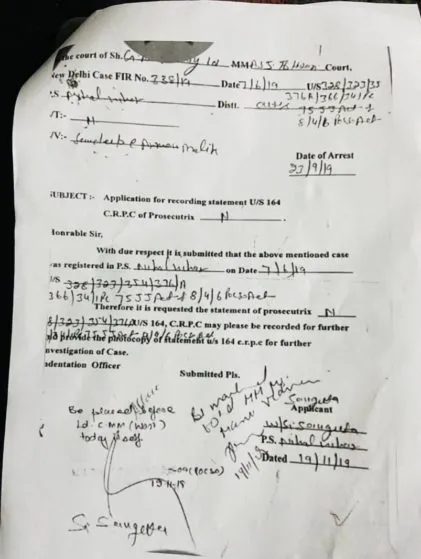 the court of Sh. MM Court,
New Delhi Case FIR No. 338/19 Date 7/6/19 U/S 328/323/35
P.S. Nihal vihar Distt. outer 376A/366/34/IPC
75 JJ Act &
8/4/6 Poc. Act
ST:- N
V/:- Sandeep & Arman Malik
Date of Arrest
23/9/19
SUBJECT :- Application for recording statement U/S 164
C.R.P.C of Prosecutrix N .
Honrable Sir,
With due respect it is submitted that the above mentioned case
was registered in P.S. Nihal vihar on Date 7/6/19
U/S 328/323/354/376/A
366/34/IPC 75 JJ Act & 8/4/6 Poc Act
Therefore it is requested the statement of prosecutrix N
8/323/354/376A U/S 164, C.R.P.C may please be recorded for further
and provide the photocopy of statement u/s 164 c.r.p.c for further
nvestigation of Case.
identation Officer
Submitted Pls.
Be placed before
Ld. CMM (West)
today itself
Be marked
to Ld MM
Sangeeta
Applicant
W/SI Sangeeta
P.S. Nihal vihar
Dated 19/11/19
19/11/19
(POCSO)
19-11-19
SI Sangeeta